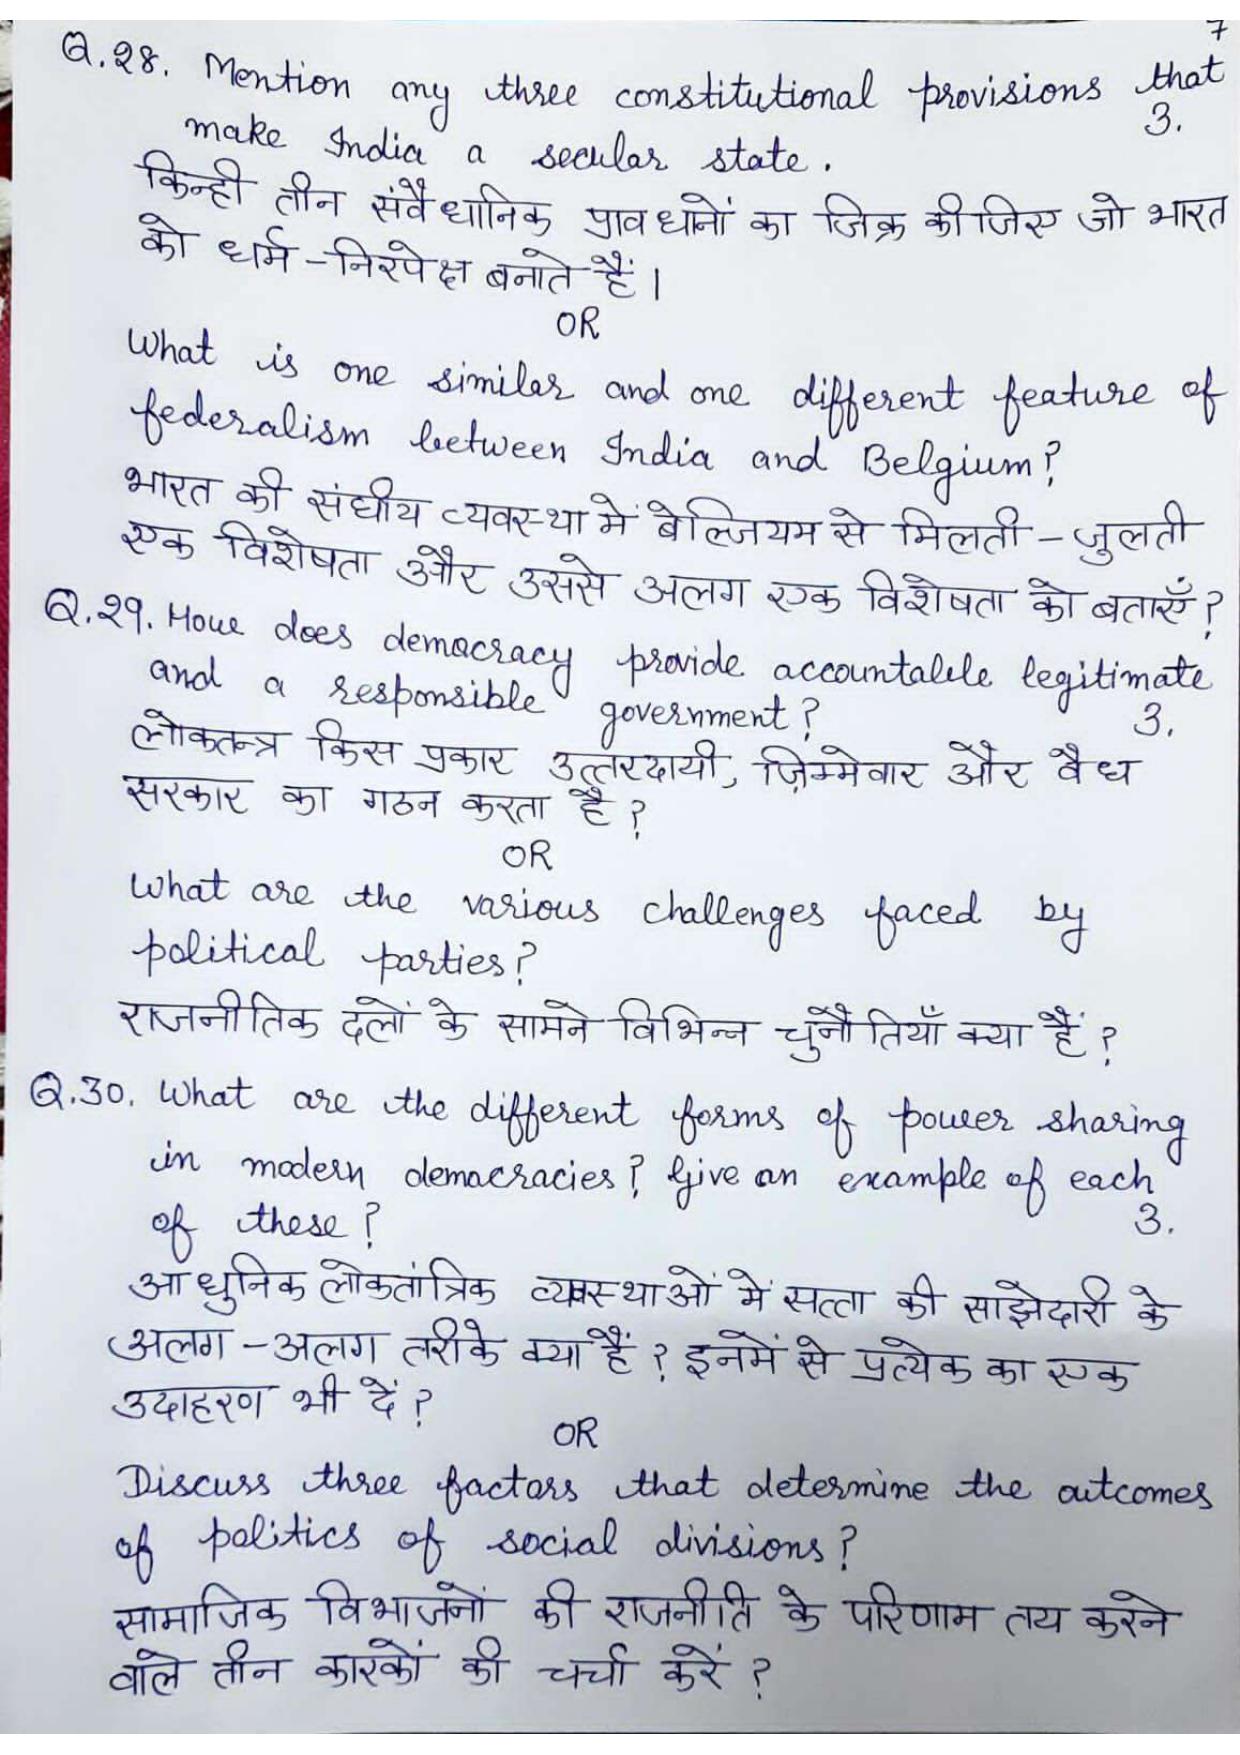 7
Q.28. Mention any three constitutional provisions that
make India a secular state. 3.
किन्ही तीन संवैधानिक प्रावधानों का जिक्र कीजिए जो भारत
को धर्म-निरपेक्ष बनाते हैं।
OR
What is one similar and one different feature of
federalism between India and Belgium?
भारत की संघीय व्यवस्था में बेल्जियम से मिलती-जुलती
एक विशेषता और उससे अलग एक विशेषता को बताएँ?
Q.29. How does democracy provide accountable legitimate
and a responsible government? 3.
लोकतन्त्र किस प्रकार उत्तरदायी, ज़िम्मेवार और वैध
सरकार का गठन करता है?
OR
What are the various challenges faced by
political parties?
राजनीतिक दलों के सामने विभिन्न चुनौतियाँ क्या हैं?
Q.30. What are the different forms of power sharing
in modern democracies? Give an example of each
of these? 3.
आधुनिक लोकतांत्रिक व्यवस्थाओं में सत्ता की साझेदारी के
अलग-अलग तरीके क्या हैं? इनमें से प्रत्येक का एक
उदाहरण भी दें?
OR
Discuss three factors that determine the outcomes
of politics of social divisions?
सामाजिक विभाजनों की राजनीति के परिणाम तय करने
वाले तीन कारकों की चर्चा करें?